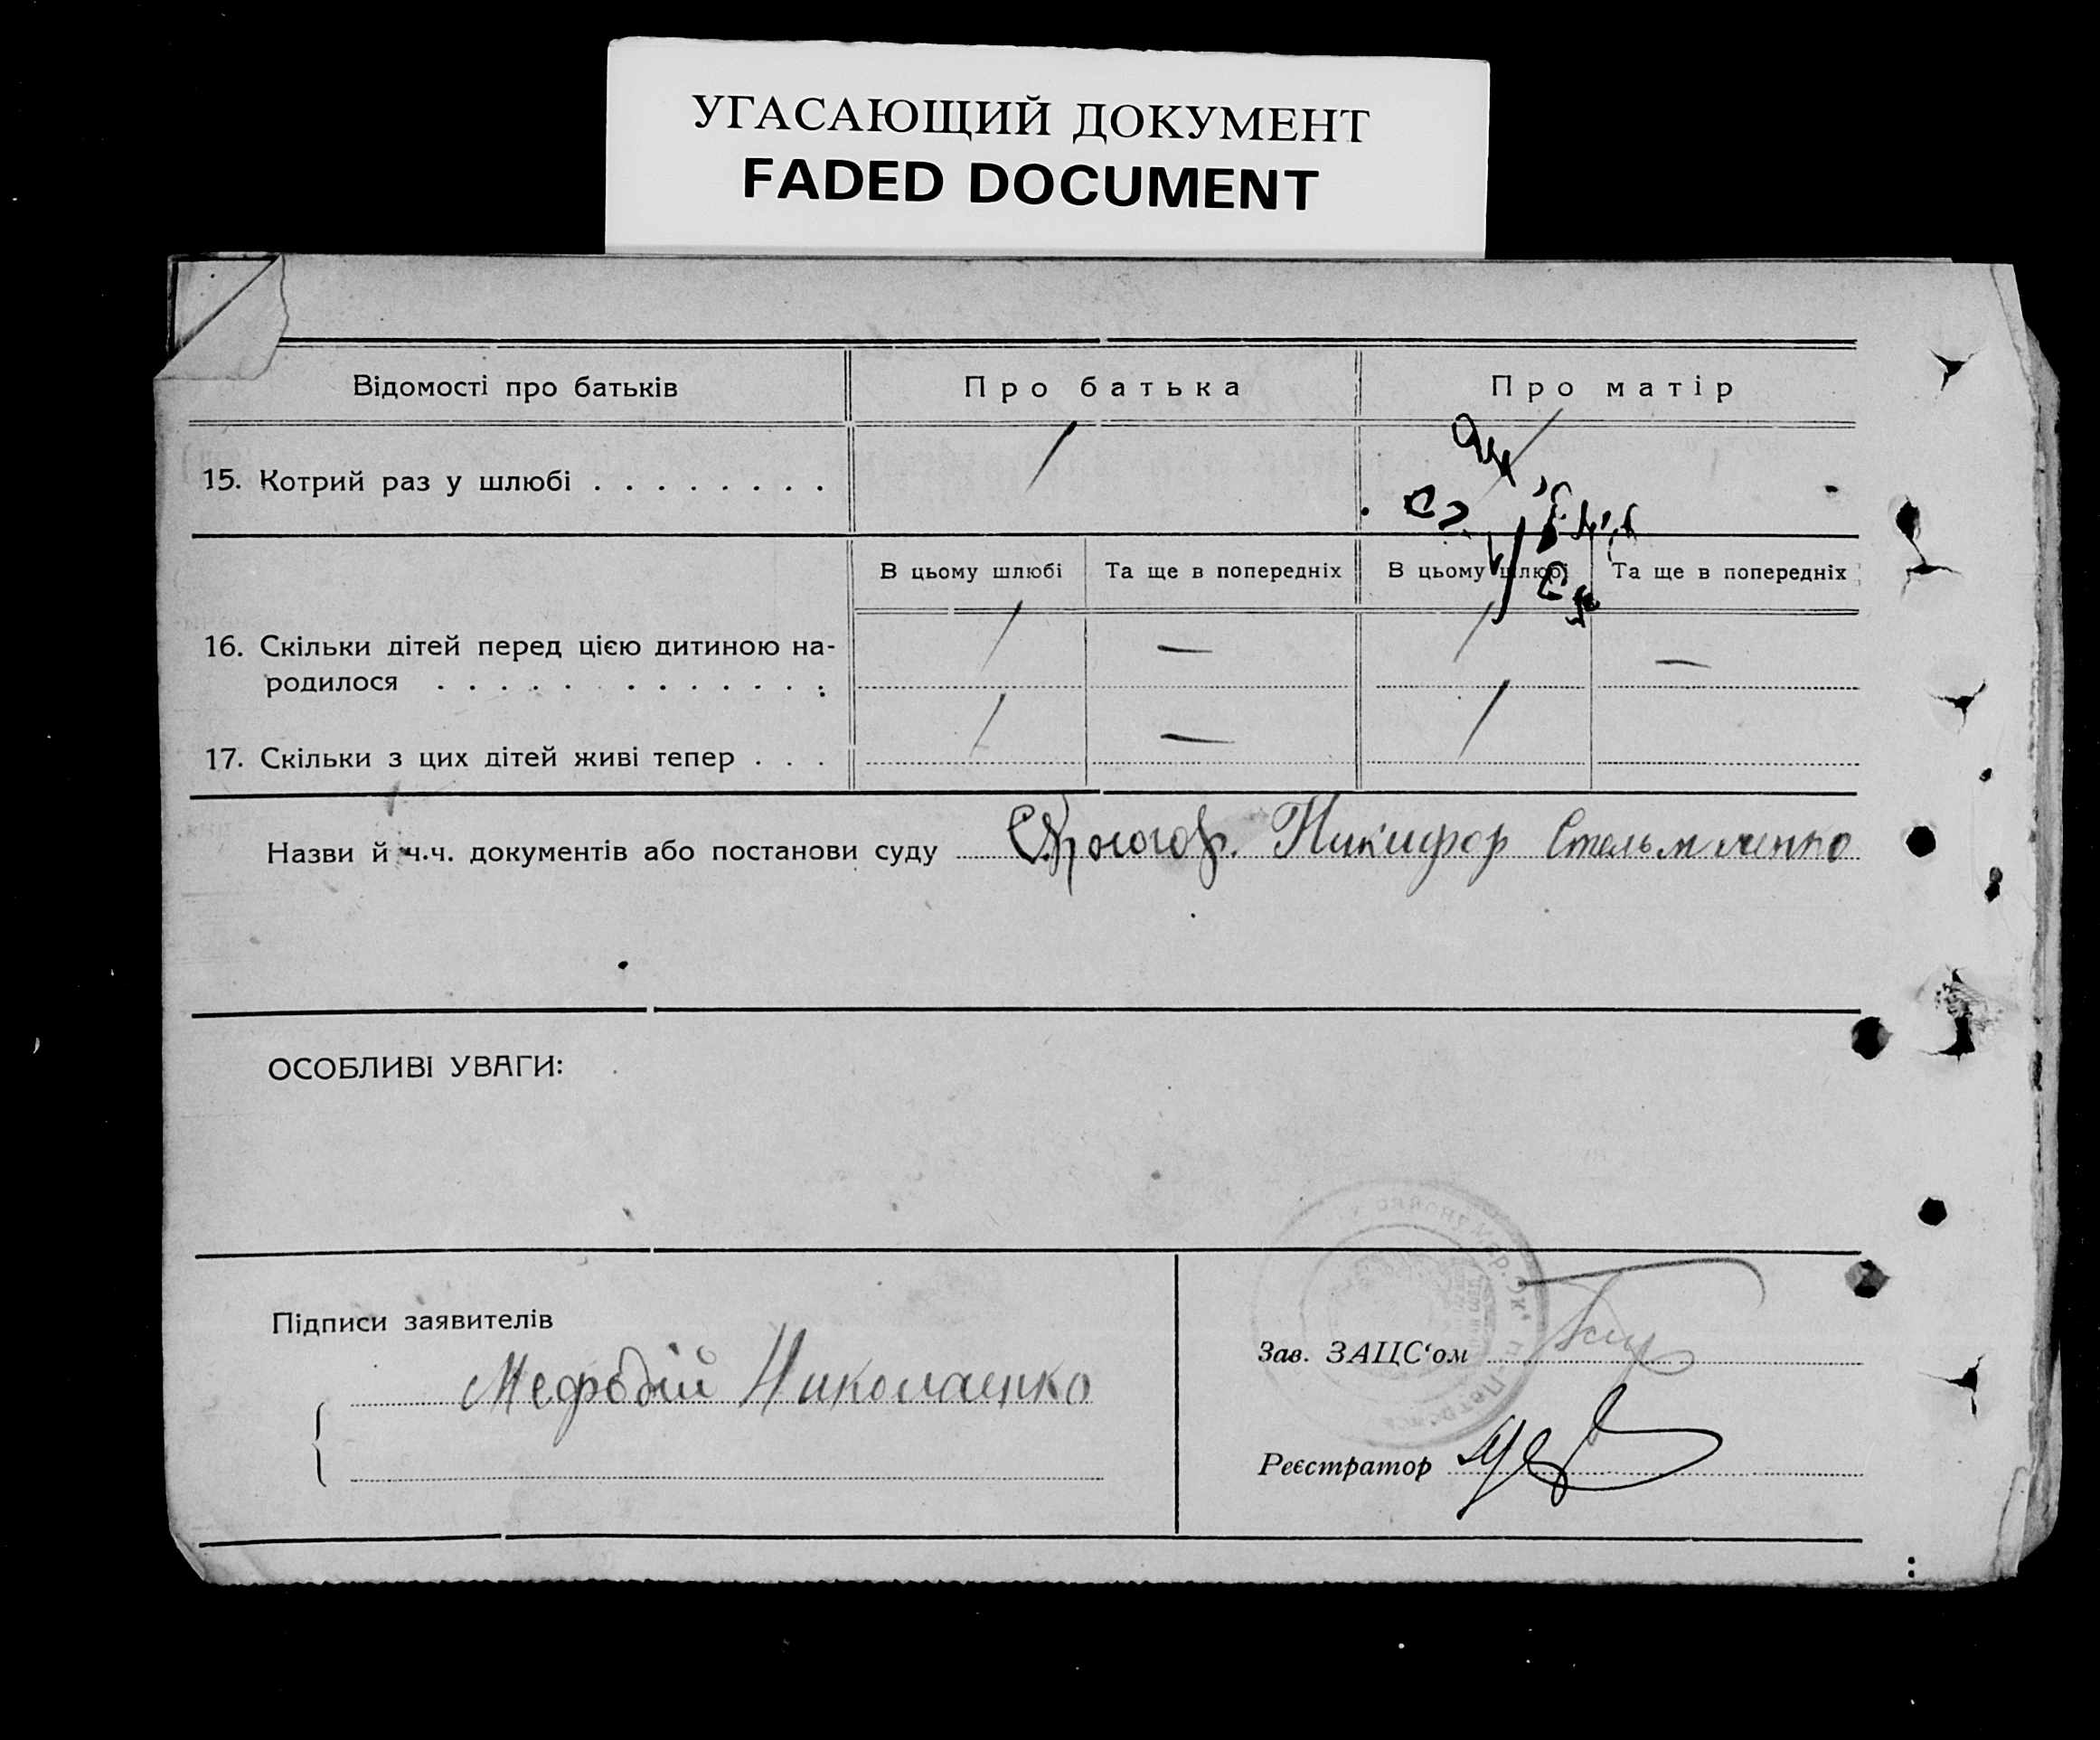 УГАСАЮЩИЙ ДОКУМЕНТ
FADED DOCUMENT
Відомості про батьків
Про батька
Про матір
15. Котрий раз у шлюбі . . . . . . . .
1
В цьому шлюбі
Та ще в попередніх
В цьому шлюбі
Та ще в попередніх
16. Скільки дітей перед цією дитиною на-
родилося . . . . . . . . . . . . .
1 — 1 —
17. Скільки з цих дітей живі тепер . . .
1 — 1
Назви й ч.ч. документів або постанови суду Никифор
ОСОБЛИВІ УВАГИ:
Підписи заявителів
Мефодій Николаенко
Зав. ЗАЦС‘ом
Реєстратор